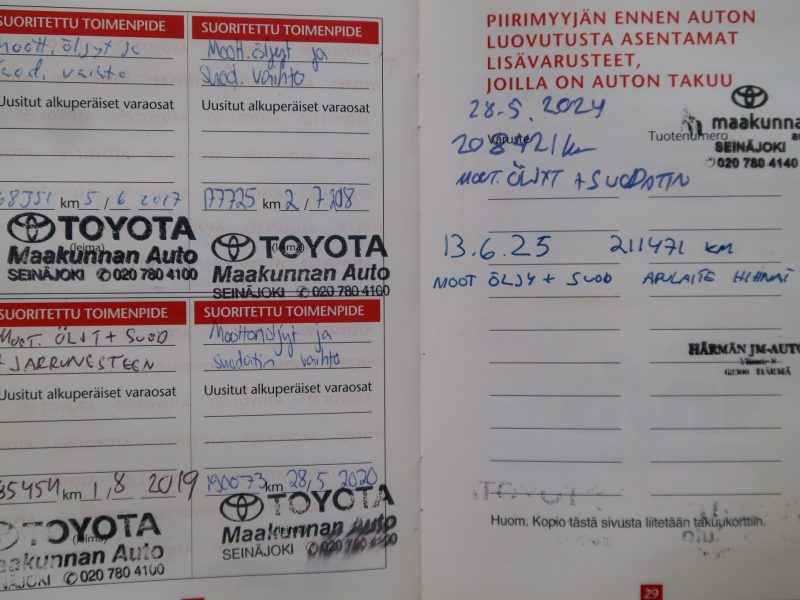 SUORITETTU TOIMENPIDE
Moott. öljyt ja
suod. vaihto
Uusitut alkuperäiset varaosat
km 5,6 2017
(leima)
TOYOTA
Maakunnan Auto
SEINÄJOKI 020 780 4100
SUORITETTU TOIMENPIDE
Moott. öljyt ja
Suod. vaihto
Uusitut alkuperäiset varaosat
177725 km 2,7 2018
(leima)
TOYOTA
Maakunnan Auto
SEINÄJOKI 020 780 4100
SUORITETTU TOIMENPIDE
MOOT. ÖLJYT + SUOD
+ JARRUNESTEEN
Uusitut alkuperäiset varaosat
85454 km 1,8 2019
(leima)
TOYOTA
aakunnan Auto
NÄJOKI 020 780 4100
SUORITETTU TOIMENPIDE
Moottoriöljyt ja
suodatin vaihto
Uusitut alkuperäiset varaosat
190073 km 28,5 2020
(leima)
TOYOTA
Maakunnan Auto
SEINÄJOKI 020 780 4100
PIIRIMYYJÄN ENNEN AUTON
LUOVUTUSTA ASENTAMAT
LISÄVARUSTEET,
JOILLA ON AUTON TAKUU
28.5.2024
maakunna
Varuste Tuotenumero
SEINÄJOKI
208421 km
020 780 4140
MOOT. ÖLJYT + SUODATIN
13.6.25 211471 KM
MOOT ÖLJY + SUOD
HÄRMÄN JM-AUTO
HÄRMÄ
Huom. Kopio tästä sivusta liitetään takuukorttiin.
29